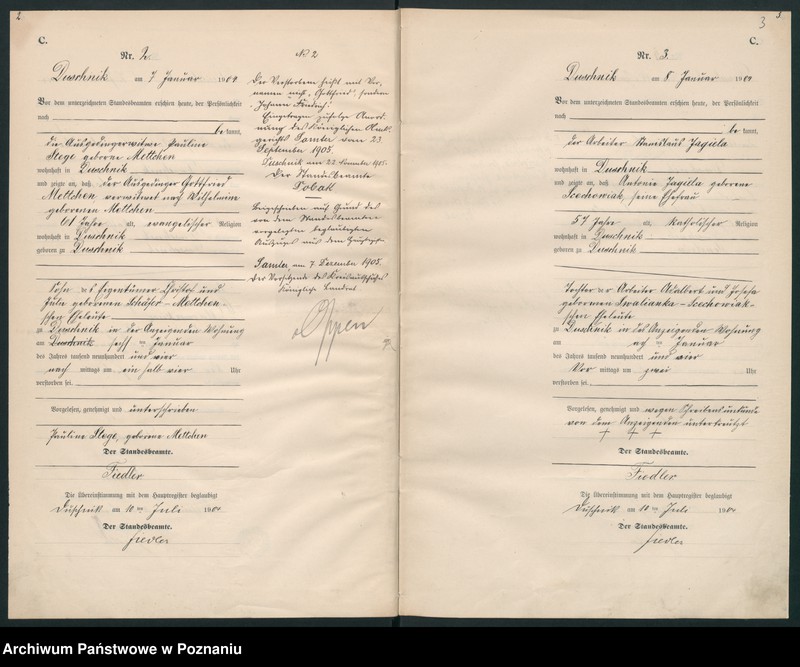 2.
C.
Nr. 2.
Duschnik am 7 Januar 1904
Vor dem unterzeichneten Standesbeamten erschien heute, der Persönlichkeit
nach
be kannt,
die Ausgedingerwitwe Pauline
Stege geborene Mettchen
wohnhaft in Duschnik
und zeigte an, daß der Ausgedinger Gottfried
Mettchen verwitwet nach Wilhelmine
geborenen Mettchen
61 Jahre alt, evangelischer Religion
wohnhaft in Duschnik
geboren zu Duschnik
Sohn des Eigentümer und
geborenen Schäfer-Mettchen-
schen Eheleute
zu Duschnik in der Anzeigenden Wohnung
am Duschnik sechsten Januar
des Jahres tausend neunhundert und vier
nach mittags um ein halb vier Uhr
verstorben sei.
Vorgelesen, genehmigt und unterschrieben
Pauline Stege, geborene Mettchen
Der Standesbeamte.
Fiedler
Die Übereinstimmung mit dem Hauptregister beglaubigt
Duschnik am 10ten Juli 1904
Der Standesbeamte.
Fiedler
No 2
Der Verstorbene heißt mit Vor-
namen nicht „Gottfried", sondern
„Johann Friedrich"
Eingetragen zufolge Anord-
nung des Königlichen Amts-
gerichts Samter vom 23
September 1905.
Duschnik am 22 November 1905.
Der Standesbeamte
Tobak
Vorgeschrieben auf Grund des
von dem Standesbeamten
vorgelegten beglaubigten
Auszuges aus dem
Samter am 7. Dezember 1905.
Der Vorsitzende des Kreisausschusses
Königliche Landrat
3
3.
C.
Nr. 3.
Duschnik am 8 Januar 1904
Vor dem unterzeichneten Standesbeamten erschien heute, der Persönlichkeit
nach
be kannt,
der Arbeiter Stanislaus Jagiela
wohnhaft in Duschnik
und zeigte an, daß Antonie Jagiela geborene
Szechowiak, seine Ehefrau
57 Jahre alt, katholischer Religion
wohnhaft in Duschnik
geboren zu Duschnik
Tochter der Arbeiter Adalbert und Josefa
geborenen Szechowiak-
schen Eheleute
zu Duschnik in des Anzeigenden Wohnung
am achten Januar
des Jahres tausend neunhundert und vier
Vor mittags um zwei Uhr
verstorben sei.
Vorgelesen, genehmigt und wegen Schreibensunkunde
von dem Anzeigenden unterkreuzt
+ + +
Der Standesbeamte.
Fiedler
Die Übereinstimmung mit dem Hauptregister beglaubigt
Duschnik am 10ten Juli 1904
Der Standesbeamte.
Fiedler
Archiwum Państwowe w Poznaniu